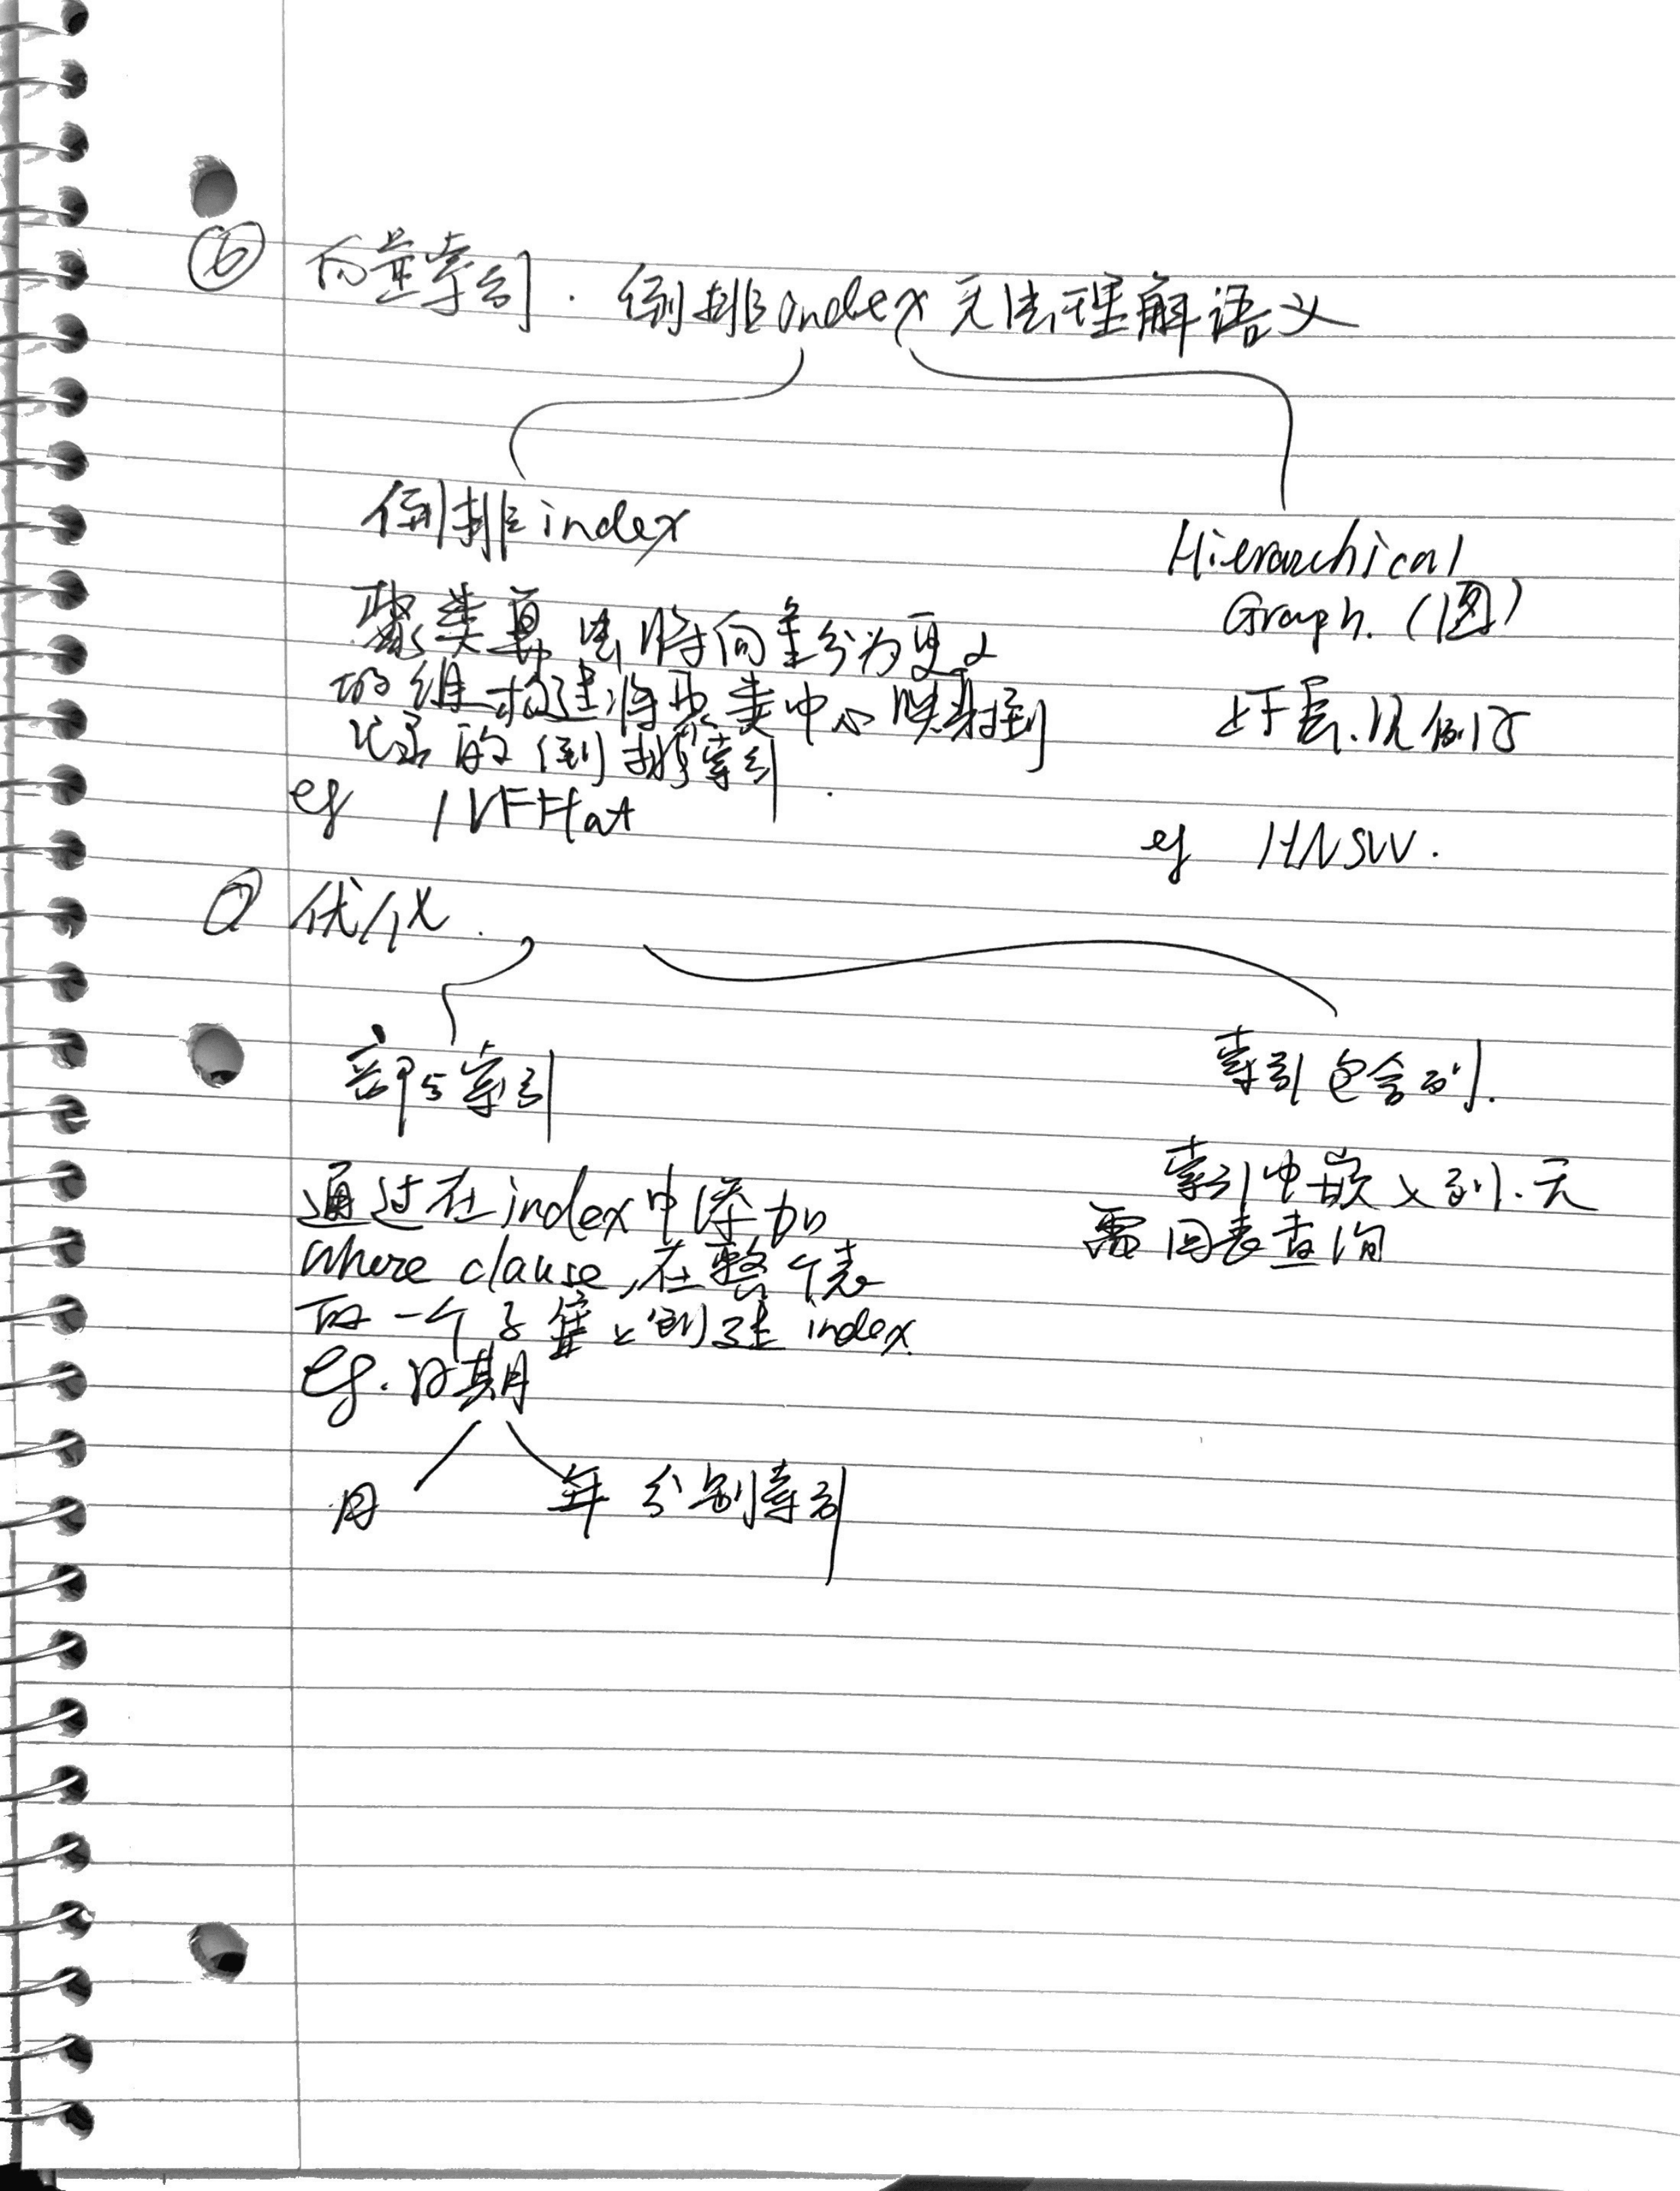 ⑥ 向量索引. 倒排index无法理解语义
倒排index
聚类算法将向量分为更小
的组构建将聚类中心映射到
记录的倒排索引.
eg IVFFlat
Hierarchical
Graph. (图)
上下层.见例子
eg HNSW.
⑦ 优化.
部分索引
通过在index中添加
where clause,在整个表
的一个子集上创建index.
eg. 日期
月 年 分别索引
索引包含列.
索引中嵌入列.无
需回表查询